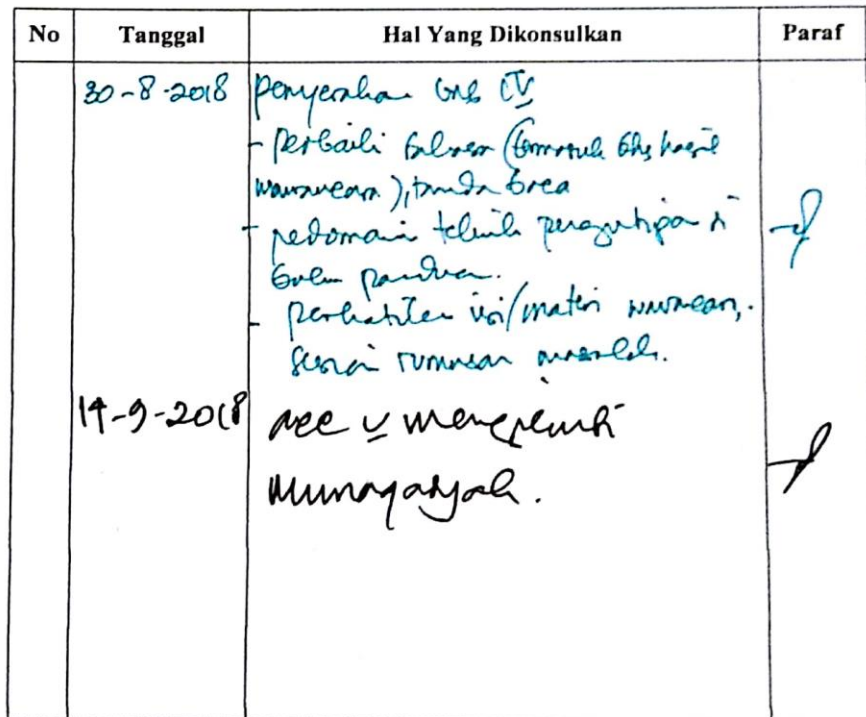 No Tanggal Hal Yang Dikonsulkan Paraf
30-8-2018 Penyerahan bab IV
- perbaiki bahasa (termasuk bhs hasil
wawancara), tanda baca
- pedoman teknik pengutipan di
buku panduan.
- perhatikan isi/materi wawancara,
sesuai rumusan masalah.
14-9-2018 acc u mengikuti
Munaqasyah.